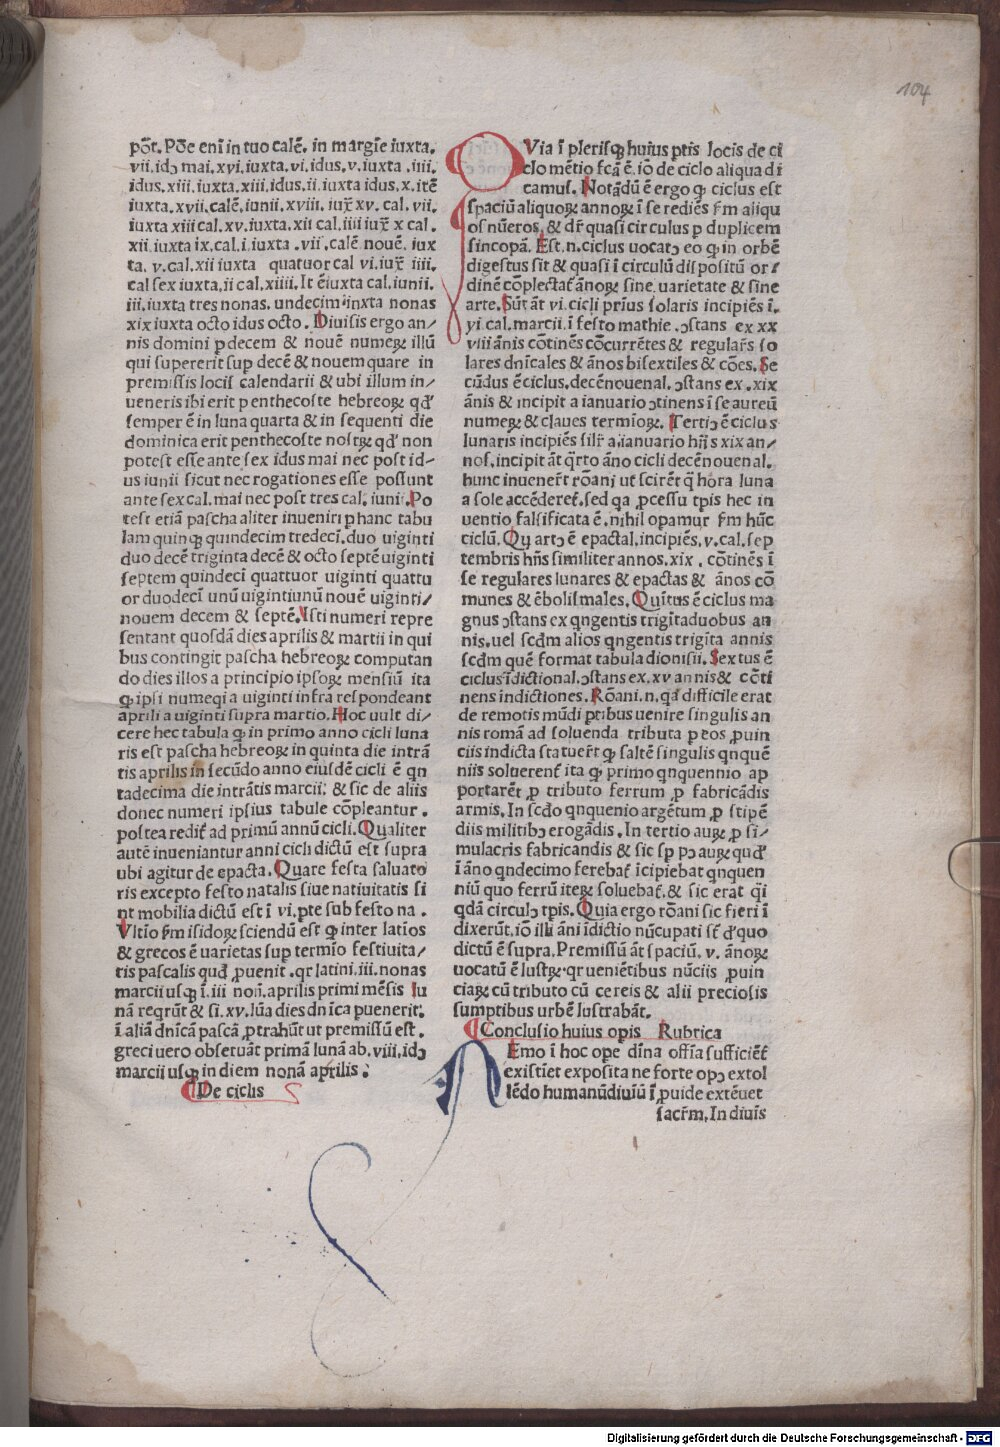 104
pōt. Pōe enī in tuo calē. in margīe iuxta.
vii.idɔ mai.xvi.iuxta.vi.idus.v.iuxta .iiii.
idus.xiii.iuxta.xiii.idus.ii.iuxta idus.x.itē
iuxta.xvii.calē.iunii.xviii. iux̄ xv. cal. vii.
iuxta xiii cal.xv.iuxta.xii cal.iiii iux̄ x cal.
xii.iuxta ix.cal.i.iuxta .vii.calē nouē. iux
ta. v.cal.xii iuxta quatuor cal vi.iux̄ iiii.
cal sex iuxta.ii cal.xiiii. It ē iuxta cal.iunii.
iii.iuxta tres nonas. undecim inxta nonas
xix iuxta octo idus octo. Diuisis ergo an/
nis domini p decem & nouē numeꝝ illū
qui supererit sup decē & nouem quare in
premissis locis calendarii & ubi illum in/
ueneris ibi erit penthecoste hebreoꝝ qd'
semper ē in luna quarta & in sequenti die
dominica erit penthecoste nostꝝ qd' non
potest esse ante sex idus mai nec post id/
us iunii sicut nec rogationes esse possunt
ante sex cal. mai nec post tres cal. iunii. Po
test etiā pascha aliter inueniri p hanc tabu
lam quinqꝫ quindecim tredeci.duo uiginti
duo decē triginta decē & octo septē uiginti
septem quindeci quattuor uiginti quattu
or duodecī unū uigintiunū nouē uiginti/
nouem decem & septē. Isti numeri repre
sentant quosdā dies aprilis & martii in qui
bus contingit pascha hebreoꝝ computan
do dies illos a principio ipsoꝝ mensiū ita
ꝙ ipsi numeqi a uiginti infra respondeant
aprili a uiginti supra martio. Hoc uult di/
cere hec tabula ꝙ in primo anno cicli luna
ris est pascha hebreoꝝ in quinta die intrā
tis aprilis in secūdo anno eiusdē cicli ē qn
tadecima die intrātis marcii; & sic de aliis
donec numeri ipsius tabule cōpleantur.
postea redit̄ ad primū annū cicli. Qualiter
autē inueniantur anni cicli dictū est supra
ubi agitur de epacta. Quare festa saluato
ris excepto festo natalis siue natiuitatis si
nt mobilia dictū est ī vi.pte sub festo na.
Vltīo ẜm isidoꝝ sciendū est ꝙ inter latios
& grecos ē uarietas sup termīo festiuita/
tis pascalis quā ꝓuenit.qr latini.iii.nonas
marcii usqꝫ ī.iii non̄.aprilis primi mēsis lu
nā reqrūt & si.xv.lūa dies dn̄ica puenerit;
ī aliā dnīcā pascā ꝓtrahūt ut premissū est.
greci uero obseruāt primā lunā ab.viii.idɔ
marcii usqꝫ in diem nonā aprilis:
De ciclis
QVia ī plerisqꝫ huius ptis locis de ci
clo mētio fcā ē. iō de ciclo aliqua di
camus. Notādū ē ergo ꝙ ciclus est
spaciū aliquoꝝ annoꝝ ī se rediēs ẜm aliqu
os nūeros. & dr̄ quasi circulus p duplicem
sincopā. Est.n.ciclus uocatɔ eo ꝙ in orbē
digestus sit & quasi ī circulū dispositū or/
dinē cōplectat̄ ānoꝝ sine uarietate & sine
arte. Sūt āt vi.cicli prīus solaris incipiēs ī.
vi.cal.marcii.ī festo mathie.ɔstans ex xx
viii ānis cōtinēs cōcurrētes & regulars̄ so
lares dnīcales & ānos bisextiles & cōes. Se
cūdus ē ciclus.decēnouenal.ɔstans ex.xix
ānis & incipit a ianuario ɔtinens ī se aureū
numeꝝ & claues termīoꝝ. Tertiɔ ē ciclus
lunaris incipiēs silr̄ a ianuario hn̄s xix an/
nos.incipit āt q̄rto āno cicli decēnouenal.
hunc inuener̄t rōani ut scirēt q̄ hora luna
a sole accēderet̄.sed qa ꝓcessu tp̄is hec in
uentio falsificata ē.nihil opamur ẜm hūc
ciclū. Quartɔ ē epactal.incipiēs.v.cal.sep
tembris hn̄s similiter annos.xix. cōtinēs ī
se regulares lunares & epactas & ānos cō
munes & ēbolismales. Quītus ē ciclus ma
gnus ɔstans ex qngentis trigītaduobus an
nis.uel scdm̄ alios qngentis trigīta annis
scdm̄ quē format tabula dionisii. Sextus ē
ciclus īdictional.ɔstans ex.xv annis & cōtī
nens īndictiones. Rōani.n.qa difficile erat
de remotis mūdi ptibus uenire singulis an
nis romā ad soluenda tributa p eos ꝓuin
ciis indicta statuer̄t ꝙ saltē singulis qnquē
niis soluerent̄ ita ꝙ primo qnquennio ap
portarēt ꝓ tributo ferrum ꝓ fabricādis
armis. In scdo qnquenio argētum ꝓ stipē
diis militibɔ erogādis. In tertio auꝝ ꝓ si/
mulacris fabricandis & sic sp̄ pɔ auꝝ qud'
ī āno qndecimo ferebat̄ īcipiebat qnquen
niū quo ferrū iteꝝ soluebat̄.& sic erat q̄i
qdā circulɔ tp̄is. Quia ergo rōani sic fieri ī
dixerūt.iō illi āni īdictio nūcupati st̄ d'quo
dictū ē supra. Premissū āt spaciū. v. ānoꝝ
uocatū ē lustꝝ.qr ueniētibus nūciis ꝓuin
ciaꝝ cū tributo cū cereis & alii preciosis
sumptibus urbē lustrabāt.
Conclusio huius opis Rubrica
NEmo ī hoc ope dīna offīa sufficiēt̄
existīet exposita ne forte opɔ extol
lēdo humanū diuīū ī ꝓuide extēuet
sacr̄m. In diuīs
Digitalisierung gefördert durch die Deutsche Forschungsgemeinschaft - DFG